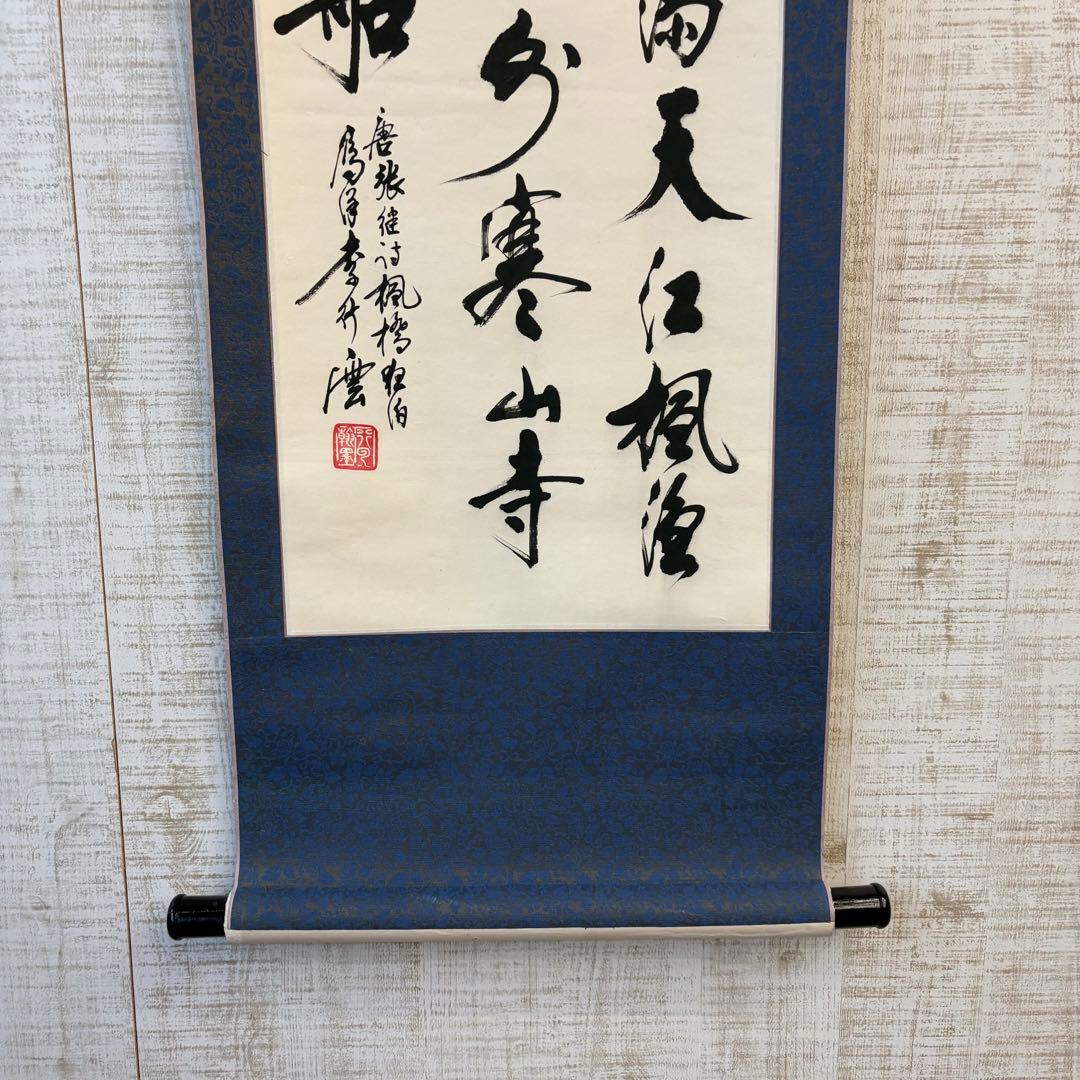 滿天江楓漁
外寒山寺
船
唐張继诗楓橋夜泊
李升雲